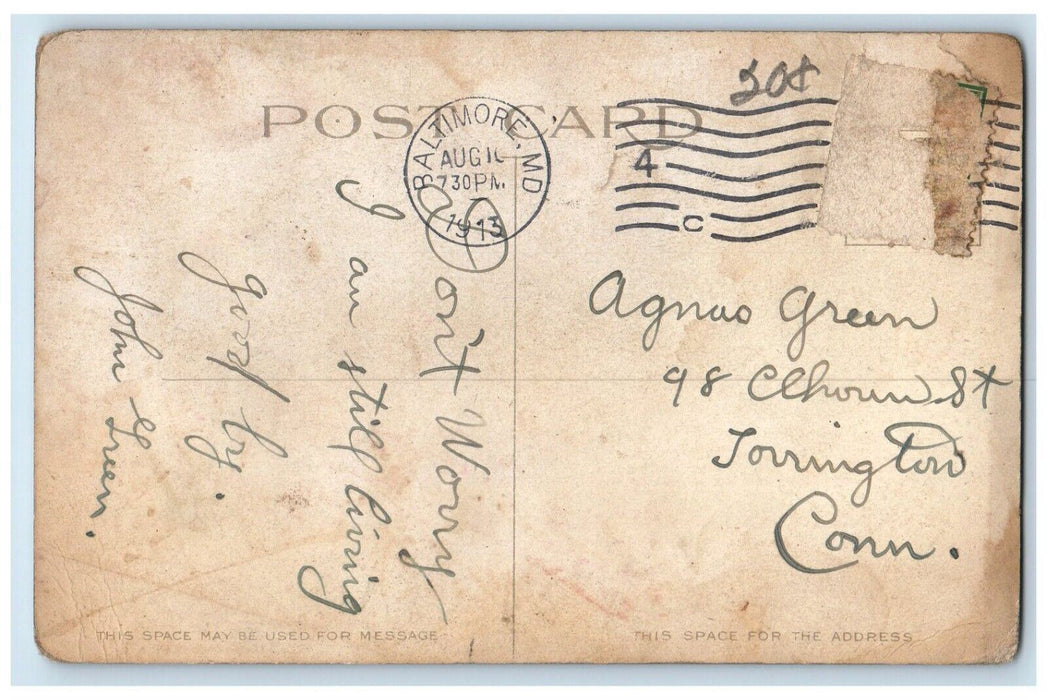 POST CARD
208
BALTIMORE, MD
AUG 10
730 PM
1913
4
C
Don't Worry
I am still living
good by.
John Green.
Agnas Green
98 Clhoun St
Torrington
Conn.
THIS SPACE MAY BE USED FOR MESSAGE
THIS SPACE FOR THE ADDRESS